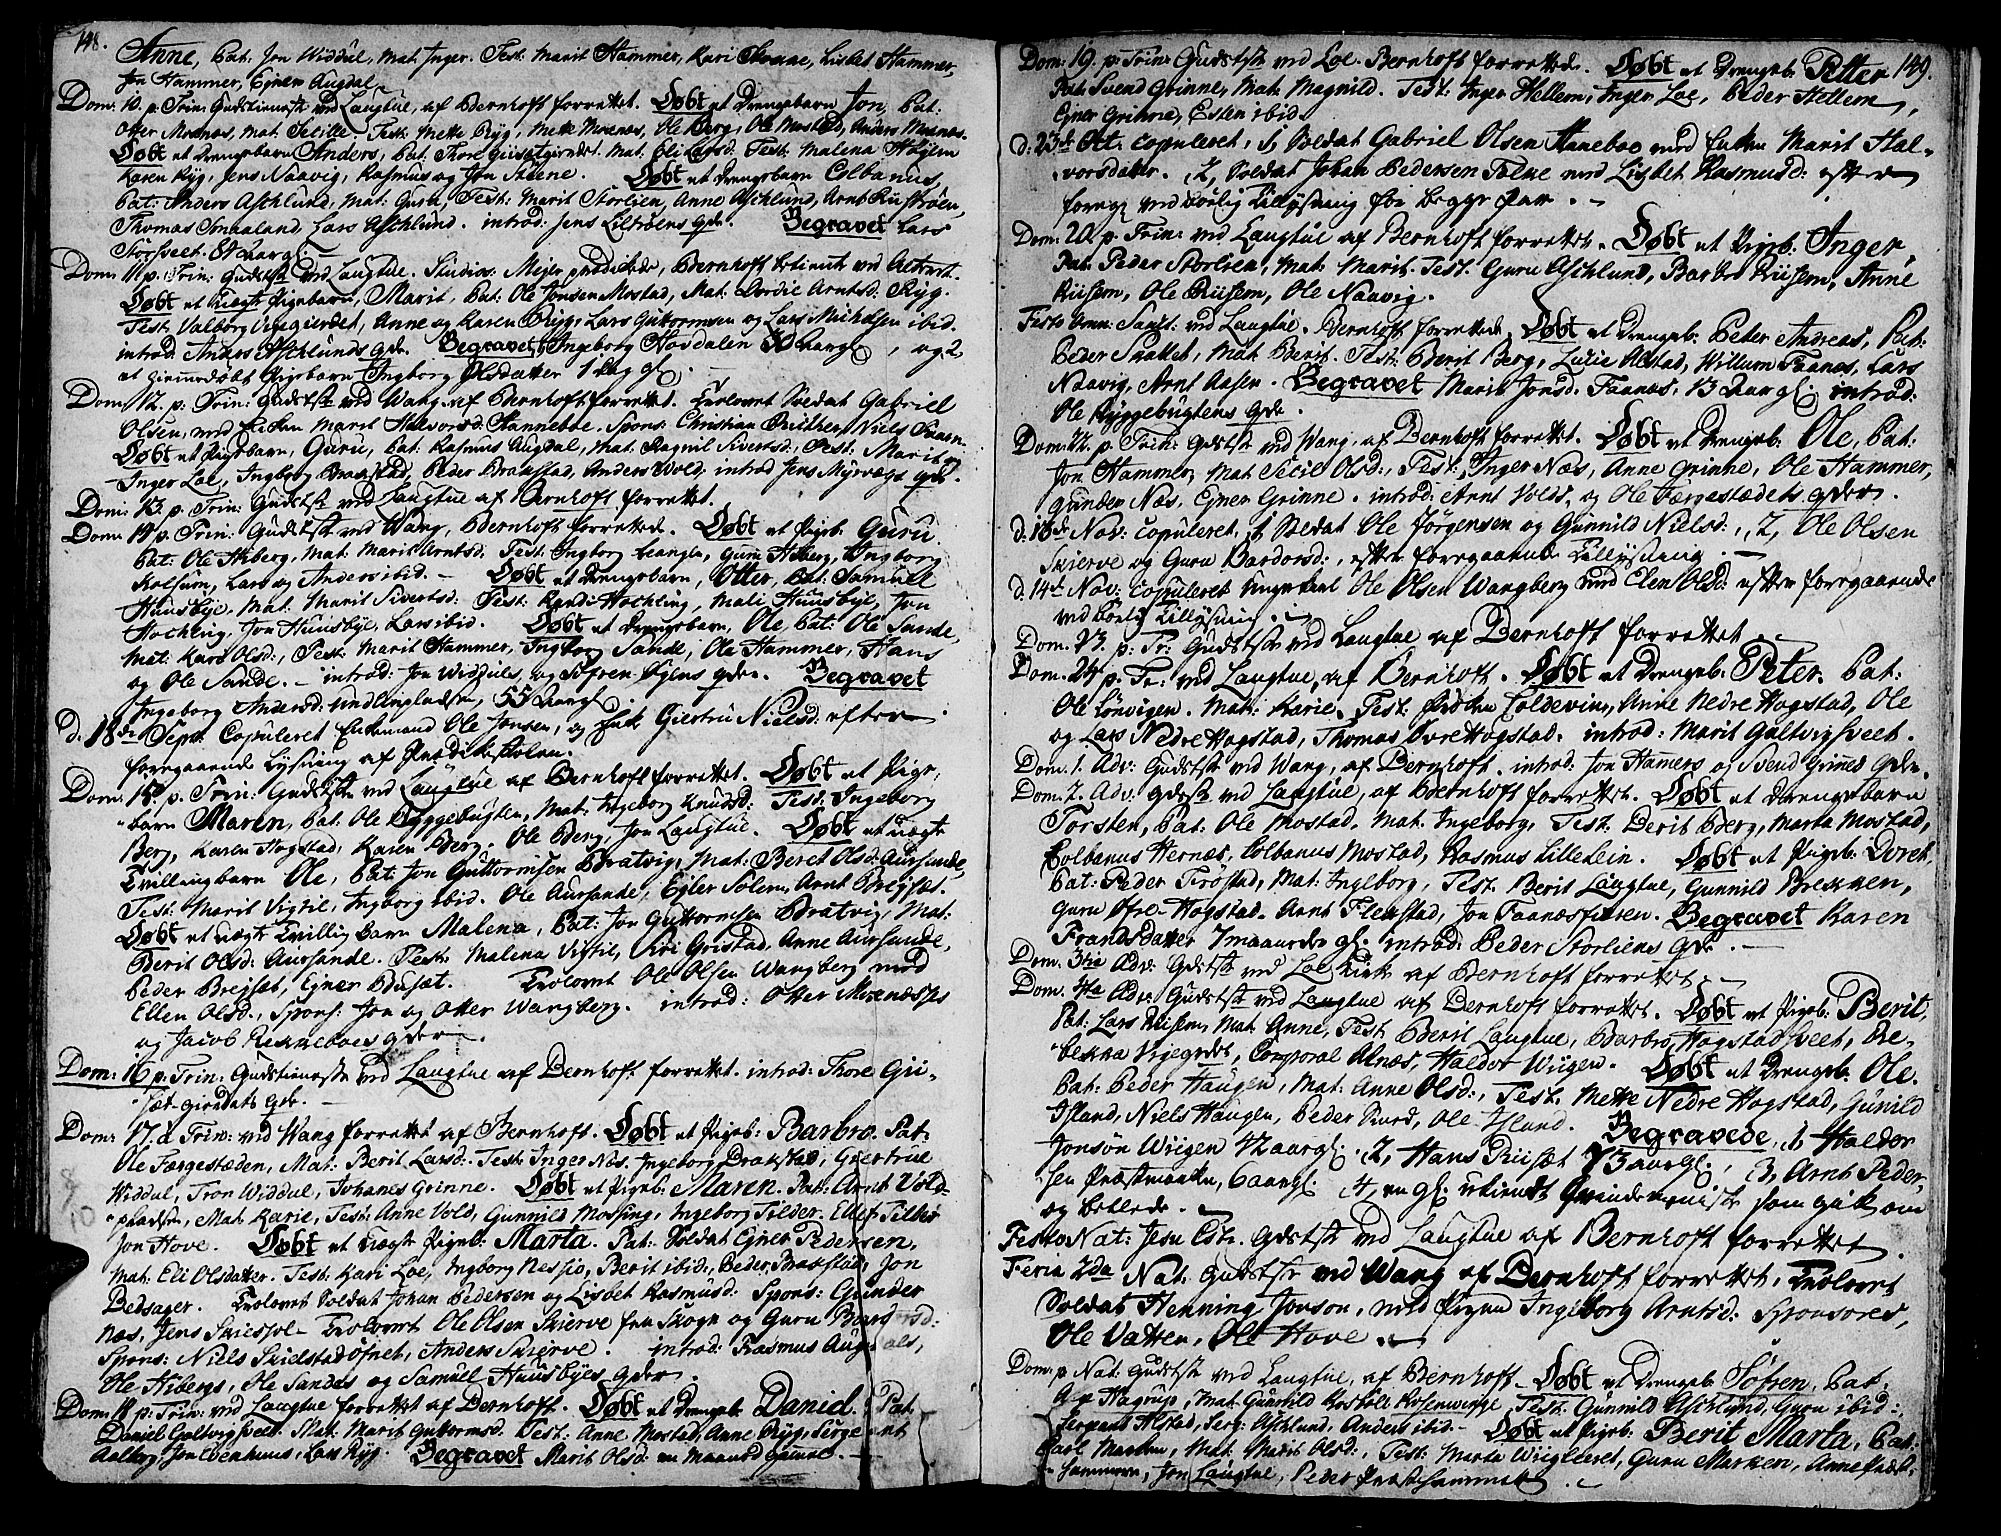 148.
Anne, Pat: Jon Widdul, Mat: Inger. Test: Marit Hammer, Kari, Lisbet Hammer,
Jon Hammer, Ejner Augdal.
Dom: 10. p: Trin: Gudstienest ved Laugtue, af Bernhoft forrettet. Døbt et Drengebarn Jon, Pat:
Otter Moxnæs, Mat: Secille, Test: Mette Ryg, Mette Moxnæs, Ole Berg, Ole Mostad, Anders Moxnæs.
Døbt et Drengebarn Anders, Pat: Thore Giisetgierdet. Mat: Eli Larsd: Test: Malena
Karen Ryg, Jens Naavig, Rasmus og Jon Steene. Døbt et Drengebarn Colbanus,
Pat: Anders Aschlund, Mat: Guru, Test: Marit Storlien, Anne Aschlund, Arnt
Thomas Smaaland, Lars Aschlund. introd: Jens Gde. Begravet Lars
Storsveet. 84 Aar gl.
Dom: 11. p: Trin: Gudstst ved Laugtue. Studios: Mejer prædikede, Bernhoft betiente ved Alteret.
Døbt et Uægte Pigebarn, Marit, Pat: Ole Jonsen Mostad, Mat: Dordie Arntsd: Ryg.
Test: Valborg Viigegierdet, Anne og Karen Ryg, Lars Guttormsen og Lars Michelsen ibid.
introd: Anders Aschlunds Gde. Begravet, Ingeborg Hovdalen Aar gl, og 2,
et hiemmedøbt Pigebarn Ingborg Olsdatter 1 Dag gl.
Dom: 12. p: Trin: Gudstst ved Wang af Bernhoft forrettet. Trolovet Soldat Gabriel
Olsen, med Enken Marit Halvorsd: Hanneboe. Spons: Christian, Niels
Døbt et Pigebarn, Guru, Pat: Rasmus Augdal, Mat: Ragnil Sivertsd: Test: Marit og
Inger Loe, Ingborg Braxstad, Peder Braxstad, Anders Wold, introd: Jens Myrvægs Gde.
Dom: 13. p: Trin: Gudstst ved Laugtue af Bernhoft forrettet.
Dom: 14 p: Trin: Gudstst ved Wang, Bernhoft forrettede. Døbt et Pigeb: Guru.
Pat: Ole Hiberg, Mat: Marit Arntsd: Test: Ingborg, Guru Hiberg, Ingborg
Kolsum, Lars og Anders ibid. Døbt et Drengebarn, Otter, Pat: Samuel
Huusbye, Mat: Marit Sivertsd: Test: Randi Hochling, Mali Huusbye, Jon
Hochling, Jon Huusbye, Lars ibid. Døbt et Drengebarn, Ole, Pat: Ole Sande,
Mat: Kari Olsd:, Test: Marit Hammer, Ingborg Sande, Ole Hammer, Hans
og Ole Sande. introd: Jon Widduls, og Søfren Øyens Gder. Begravet
Ingeborg Andersd:, 55 Aar gl.
d: 18de Sept: Copuleret Enkemand Ole Jonsen, og Enke Giertru Nielsd: efter
foregaaende Lysning af Prædikestolen.
Dom: 15. p: Trin: Gudstst ved Laugtue af Bernhoft forrettet. Døbt et Pige-
barn Maren, Pat: Ole Ryggebugten, Mat: Ingeborg Knudsd: Test: Ingeborg
Berg, Karen Hogstad, Karen Berg, Ole Berg, Jon Laugtue. Døbt et uægte
Tvillingbarn Ole, Pat: Jon Guttormsen Bratvig, Mat: Beret Olsd: Aursunde,
Test: Marit Vigtil, Ingborg ibid. Ole Aursande, Ejler Solem, Arnt
Døbt et uægte Tvilling barn Malena, Pat: Jon Guttormsen Bratvig, Mat:
Berit Olsd: Aursande. Test: Malena Vigtil, Siri Gristad, Anne Aursunde,
Peder Brejset, Ejner Busæt. Trolovet Ole Olsen Wangberg med
Ellen Olsd:, Spons: Jon og Otter Wangberg. introd: Otter Moxnæsses
og Jacob Rekneboes Gder.
Dom: 16 p: Trin: Gudstieneste ved Laugtue af Bernhoft forrettet. introd: Thore Gii-
sæt-gierdets Gde.
Dom: 17. p: Trin: ved Wang forrettet af Bernhoft. Døbt et Pigeb: Barbro. Pat:
Ole Færgestæden, Mat: Berit Larsd: Test: Inger Næs. Ingeborg Brakstad, Giertrue
Widdul, Tron Widdul, Johanes Grinne. Døbt et Pigeb: Maren. Pat: Arnt Vold-
pladsen, Mat: Karie, Test: Anne Vold, Gunnild Mossing, Ingeborg Tilder, Ellef Tiller
Jon Hove. Døbt et uægte Pigeb: Marta. Pat: Soldat Ejner Pedersen,
Mat: Eli Olsdatter. Test: Kari Loe, Ingborg, Berit ibid:, Peder Braxstad, Jon
Bedsager. Trolovet Soldat Johan Pedersen og Lisbet Rasmusd: Spons: Gunder
Næs, Jens Trolovet Ole Olsen Skierve fra Skogn og Guru Bardosd:
Spons: Niels, Anders Skierve. introd: Rasmus Augdals,
Ole Hibergs, Ole Sandes og Samuel Huusbyes Gder.
Dom: 18 p: Trin: ved Laugtue forrettet af Bernhoft. Døbt et Drengeb: Daniel. Pat:
Daniel Galtvigsveet. Mat: Marit Guttormsd: Test: Anne Mostad, Anne Ryg, Sirge
Aalberg, Jon Evenhuus, Lars Ryg. Begravet Marit Olsd: en Maaned gammel.
8
10
149.
Dom: 19. p: Trin: Gudstst ved Loe. Bernhoft forrettede. Døbt et Drengeb: Petter,
Pat: Svend Grinne, Mat: Magnild. Test: Inger Hellem, Inger Loe, Peder Hellem,
Ejner Grinne, Esten ibid.
d: 23de Oct: copuleret, 1, Soldat Gabriel Olsen Hanneboe med Enken Marit Hal-
vorsdatter. 2, Soldat Johan Pedersen Falke med Lisbet Rasmusd: efter
foreg: ved børlig Tillysning for begge par.
Dom: 20. p: Trin: ved Laugtue af Bernhoft forrettet. Døbt et Pigeb: Inger,
Pat: Peder Storlien, Mat: Marit. Test: Guru Aschlund, Barbro Riisem, Anne
Riisem, Ole Riisem, Ole Naavig.
Festo Omn: Sanct: ved Laugtue. Bernhoft forrettede. Døbt et Drengeb: Peder Andreas, Pat:
Peder, Mat: Berit. Test: Berit Berg, Lucie Alstad, Willum Faanes, Lars
Naavig, Arnt Aasen. Begravet Marit Jonsd: Faanæs, 13 Aar gl. introd:
Ole Ryggebugtens Gde.
Dom: 22. p: Trin: Gdstst ved Wang, af Bernhoft forrettet. Døbt et Drengeb: Ole, Pat:
Jon Hammer, Mat: Secil Olsd:, Test: Inger Næs, Anne Grinne, Ole Hammer,
Gunder Næs, Ejner Grinne. introd: Arnt Volds, og Ole Færgestædets Gder.
d: 13de Nov: copuleret, 1, Soldat Ole Jørgensen og Gunnild Nielsd:, 2, Ole Olsen
Skierve og Guru Bardosd:, efter foregaaende Tillysning.
d: 14de Nov: Copuleret Ungekarl Ole Olsen Wangberg med Elen Olsd: efter foregaaende
ved børlig Tillysning.
Dom: 23. p: Tr: Gudstst ved Laugtue af Bernhoft forrettet.
Dom: 24 p: Tr: ved Laugtue, af Bernhoft. Døbt et Drengeb: Peter, Pat:
Ole Lønvigen. Mat: Karie, Test: Coldevin, Anne Nedre Hogstad, Ole
og Lars Nedre Hogstad, Thomas Øvre Hogstad. introd: Marit Galtvigsveet.
Dom: 1. Adv: Gudstst ved Wang, af Bernhoft. introd: Jon Hamers og Svend Grines Gder.
Dom: 2. Adv: Gdstst ved Laugtue, af Bernhoft forrettet. Døbt et Drengebarn
Torsten, Pat: Ole Mostad, Mat: Ingeborg, Test: Berit Berg, Marta Mostad,
Colbanus Hernæs, Colbanus Mostad, Rasmus Lillelein. Døbt et Pigeb: Doret,
Pat: Peder Trøstad, Mat: Ingeborg, Test: Berit Laugtue, Gunnild Brekken,
Guru Øfre-Hogstad, Arnt Flekstad, Jon Faanæsfiksen. Begravet Karen
Frandsdatter 7 maaneder gl. introd: Peder Storliens Gde.
Dom: 3tia Adv: Gdstst ved Loe Kirke af Bernhoft forrettet.
Dom: 4ta Adv: Gudstst ved Laugtue af Bernhoft forrettet. Døbt et Pigeb: Berit,
Pat: Lars Riisem, Mat: Anne, Test: Berit Laugtue, Barbro Hogstadsveet, Re-
bekka Vigegrdet, Corporal Alnæs, Haldor Wiigen. Døbt et Drengeb: Ole.
Pat: Peder Haugen, Mat: Anne Olsd:, Test: Mette Nedre Hogstad, Gunild
Island, Niels Haugen, Peder, Ole Island. Begravede, 1, Haldor
Jonsøn Wiigen 42 aar gl. 2, Hans Riisæt 73 aar gl., 3, Arnt Peder-
sen Præstmarken, 6 aar gl. 4, en gl: ubekiendt Qvindemenniske som gik om
og betlede.
Festo Nat: Jesu Chr: Gdstst ved Laugtue af Bernhoft forrettet.
Feria 2da Nat: Gudstst ved Wang af Bernhoft forrettet. Trolovet
Soldat Henning Jonson, med Pigen Ingeborg Arntsd: Sponsores,
Ole Vatten, Ole Hove.
Dom: p Nat: Gudstst ved Laugtue, af Bernhoft. Døbt et Drengeb: Søfren, Pat:
Hagrup, Mat: Gunhild Rosenwinge Test: Gunnild Aschlund, Guru ibid:
Sergeant Alstad, Serg: Aschlund, Anders ibid. Døbt et Pigeb: Berit Marta, Pat:
Carl Marken, Mat: Marit Olsd:, Test: Marta, Guru Marken, Anne Præst-
hammer, Jon Laugtue, Peder Præsthammer.